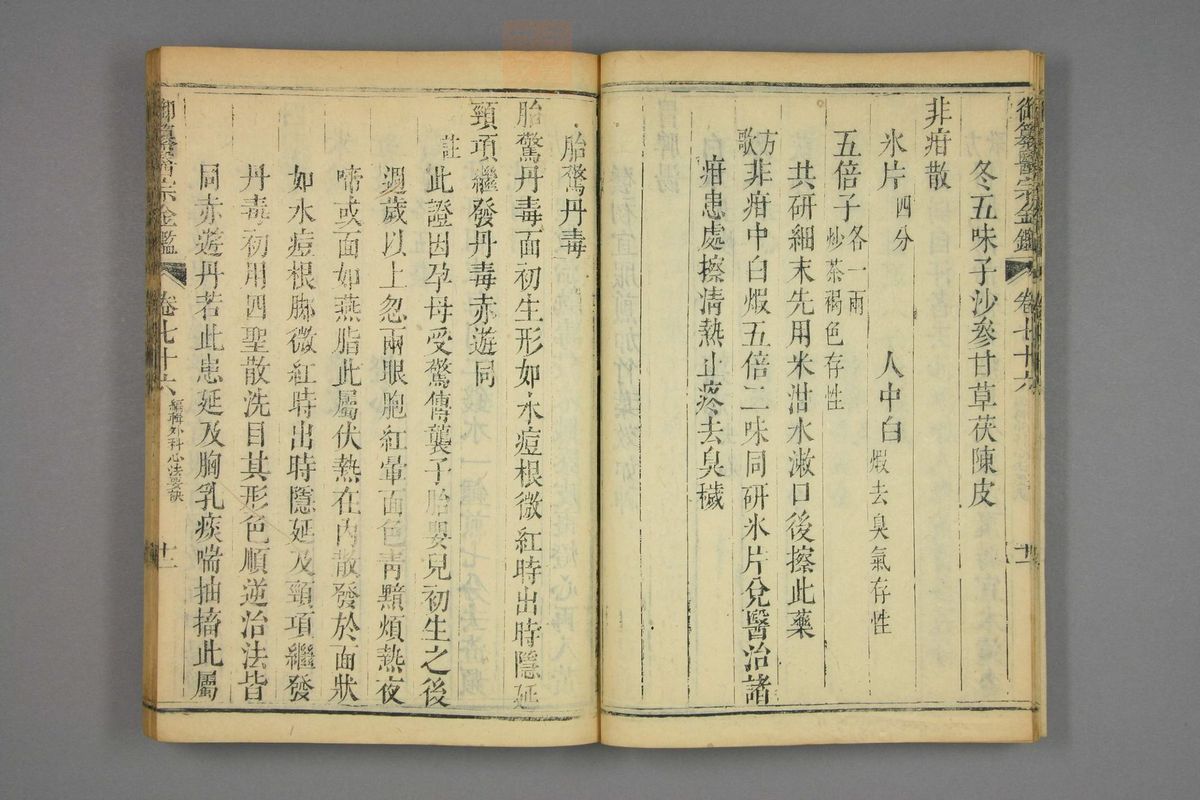 御纂醫宗金鑑 卷七十六 十一
冬五味子沙參甘草茯陳皮
非疳散
氷片四分 人中白煆去臭氣存性
五倍子各一兩炒茶褐色存性
共研細末先用米泔水漱口後擦此藥
方歌非疳中白煆五倍二味同研氷片兌醫治諸
疳患處擦淸熱止疼去臭穢
胎驚丹毒
胎驚丹毒面初生形如水痘根微紅時出時隱延
頸項繼發丹毒赤遊同
註此證因孕母受驚傳襲子胎嬰兒初生之後
週歲以上忽兩眼胞紅暈面色靑黯煩熱夜
啼或面如燕脂此屬伏熱在內散發於面狀
如水痘根脚微紅時出時隱延及頸項繼發
丹毒初用四聖散洗目其形色順逆治法皆
同赤遊丹若此患延及胸乳疾喘抽搐此屬
御纂醫宗金鑑 卷七十六 編輯外科心法要訣 十二